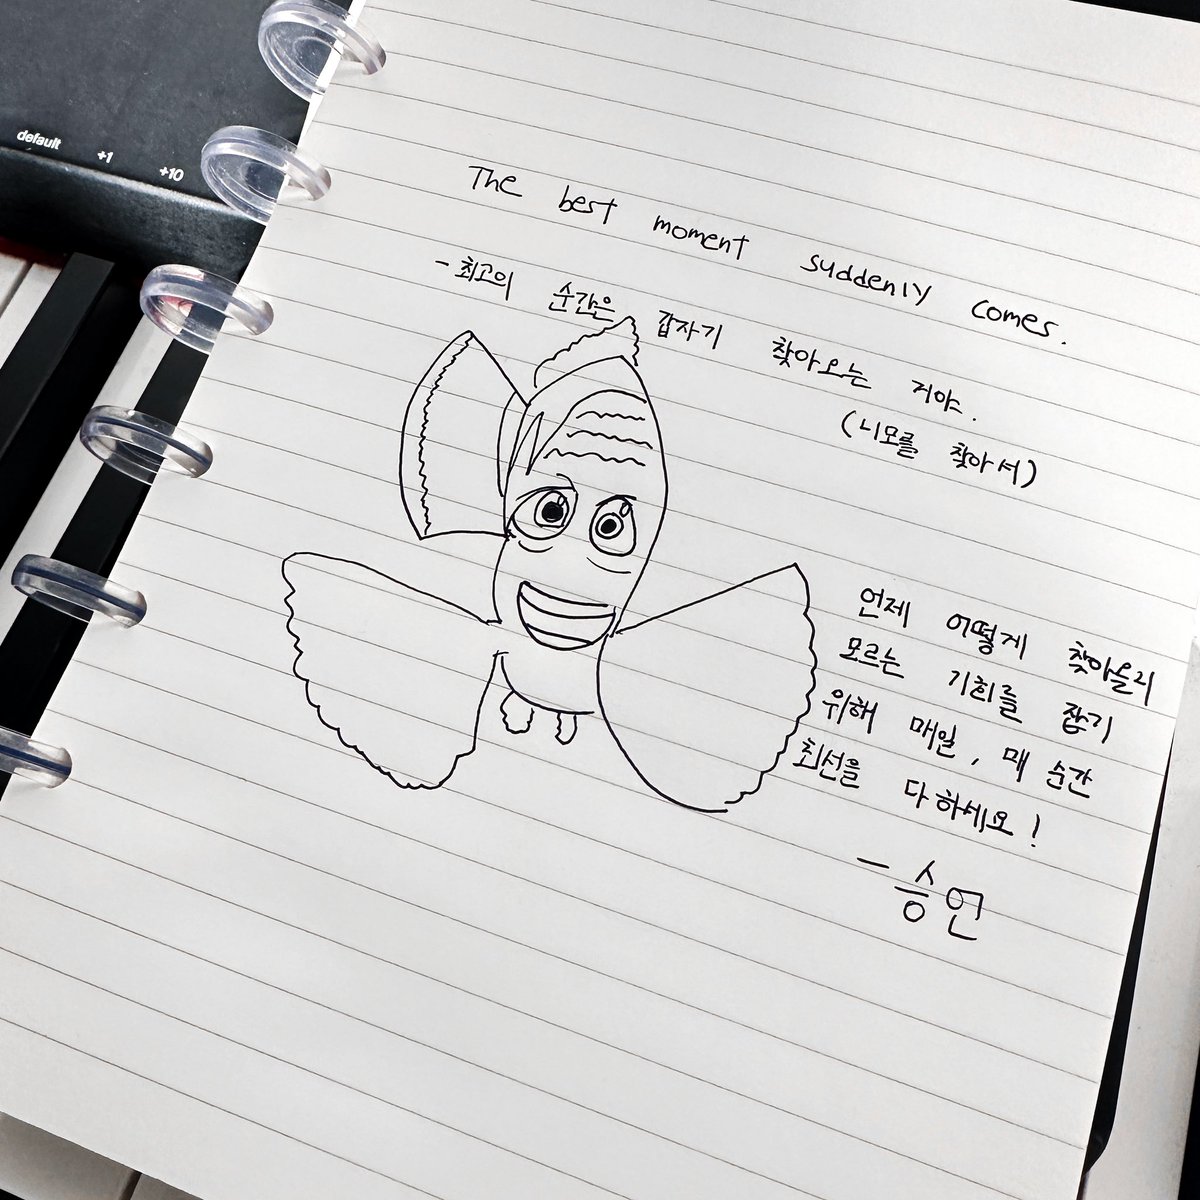 default +1 +10
The best moment suddenly comes.
- 최고의 순간은 갑자기 찾아오는 거야.
(니모를 찾아서)
언제 어떻게 찾아올지
모르는 기회를 잡기
위해 매일, 매 순간
최선을 다하세요!
- 승연